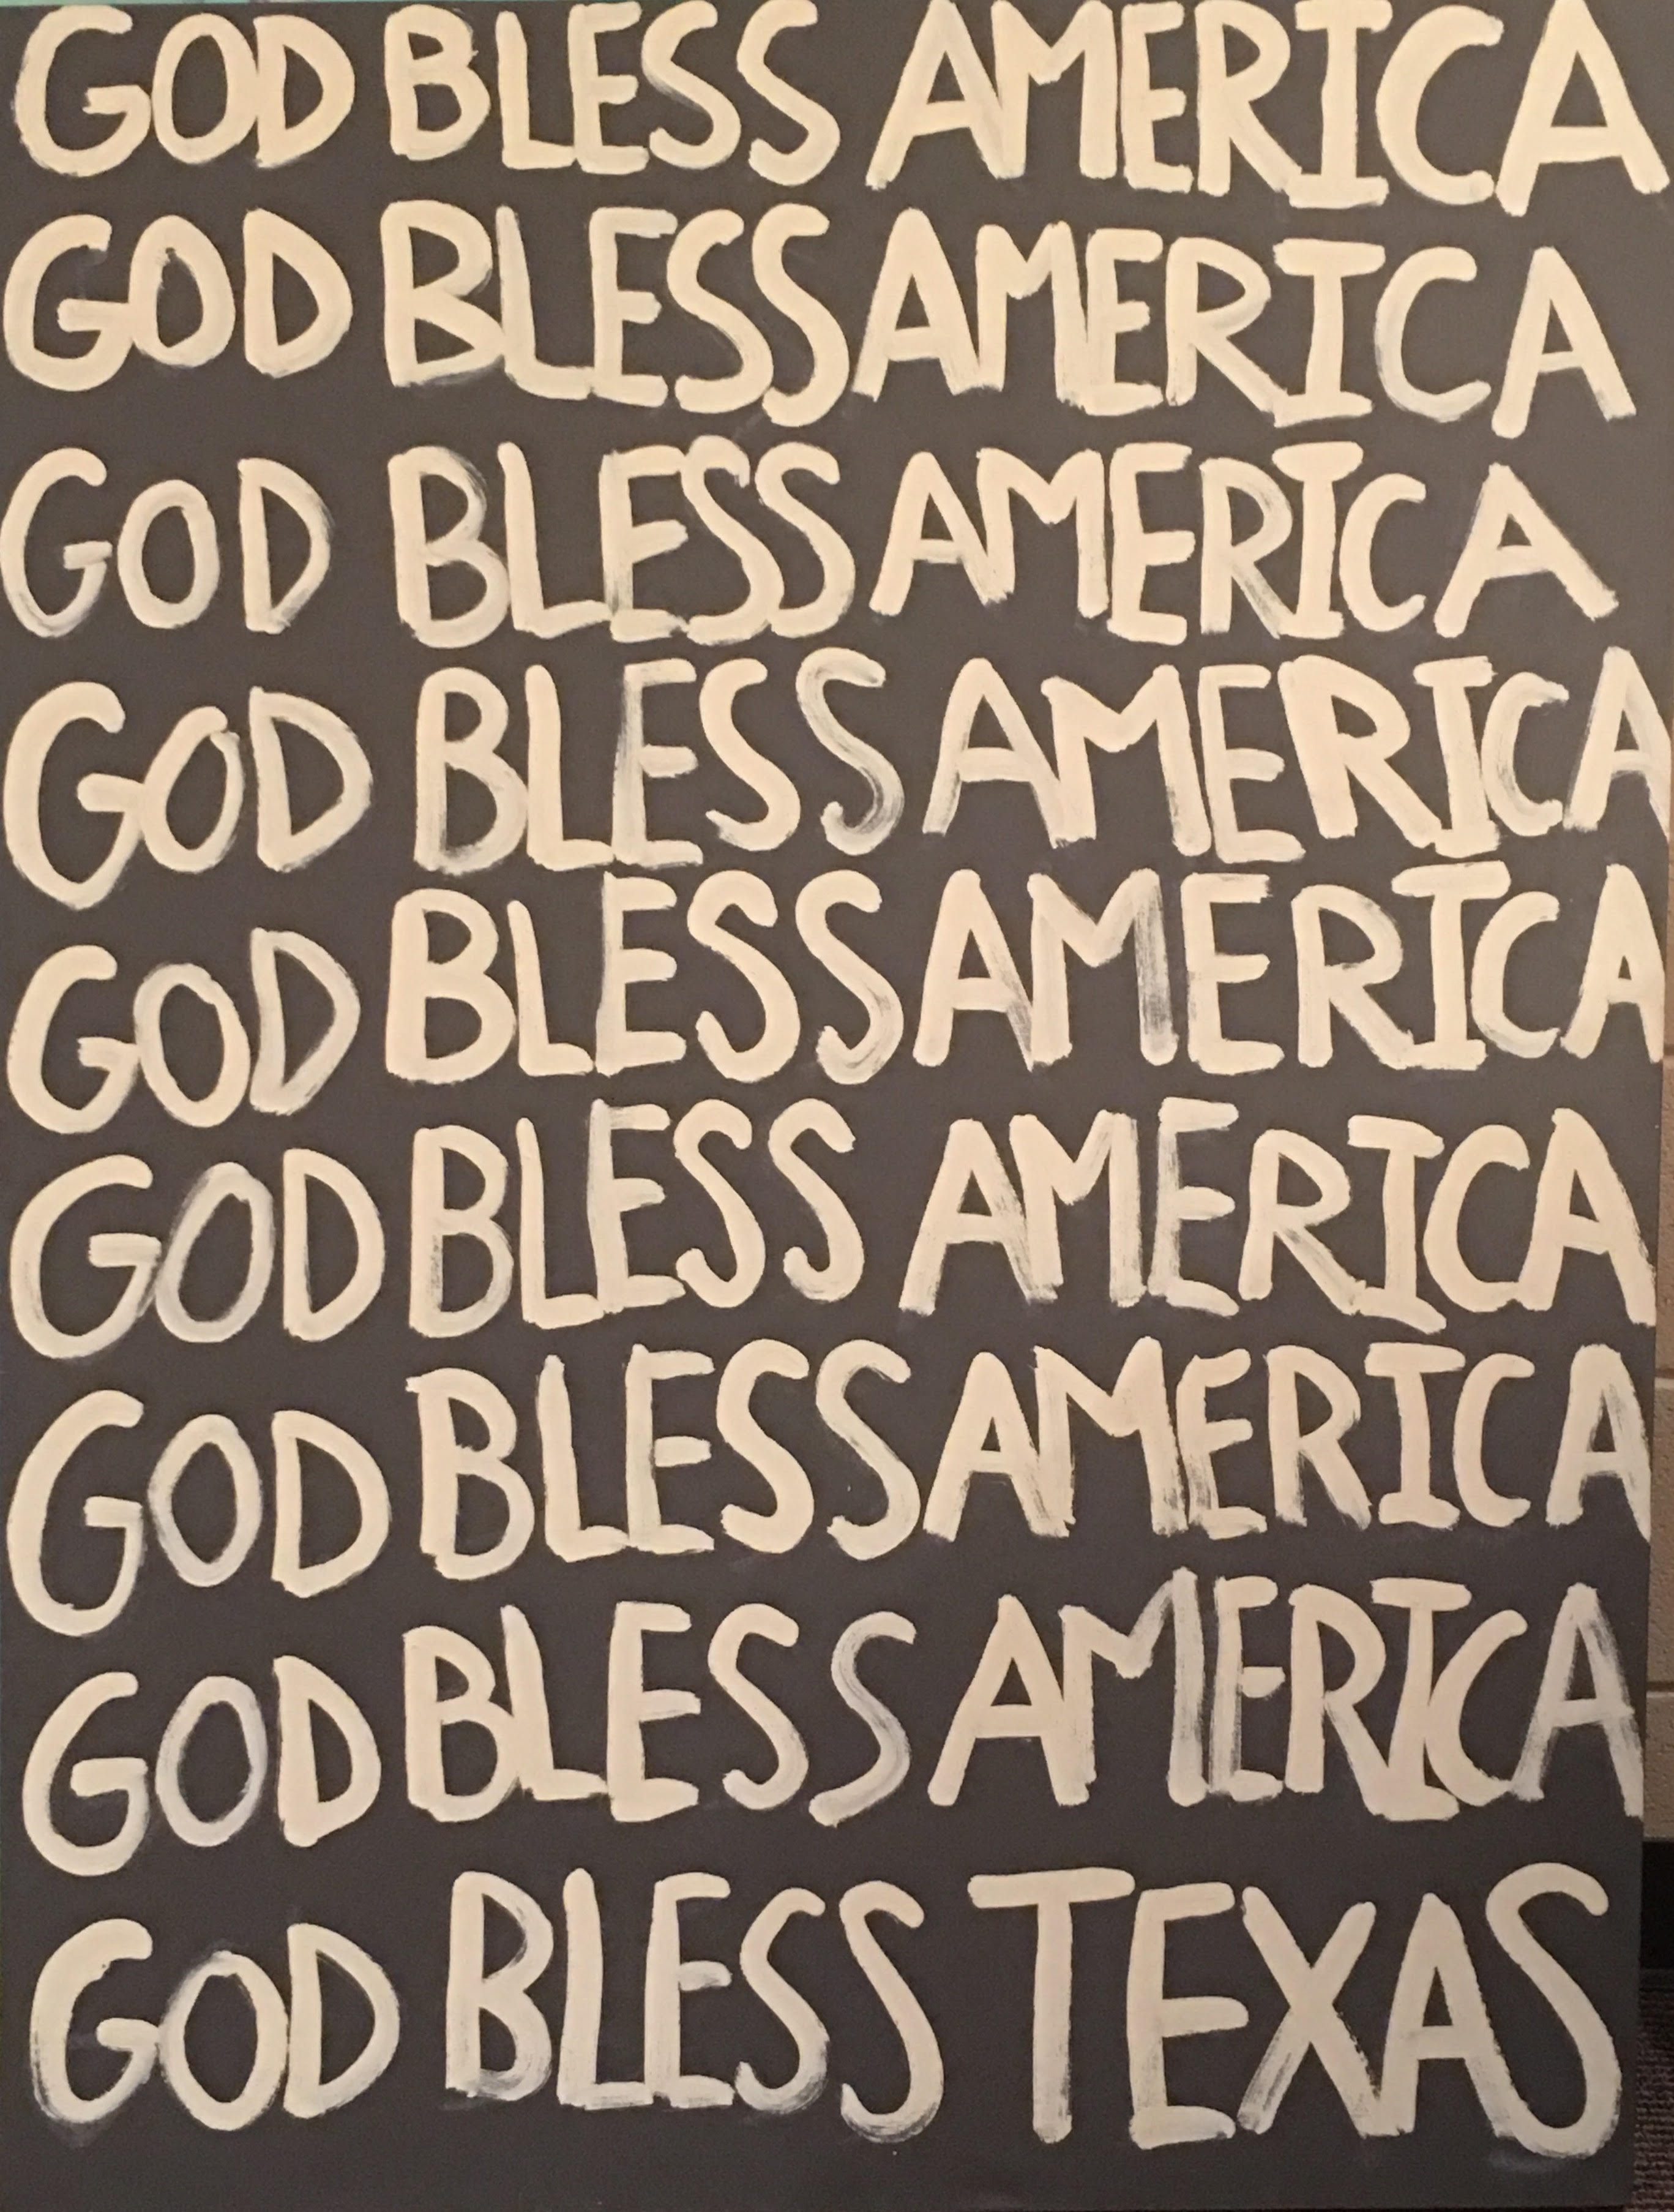 GOD BLESS AMERICA
GOD BLESS AMERICA
GOD BLESS AMERICA
GOD BLESS AMERICA
GOD BLESS AMERICA
GOD BLESS AMERICA
GOD BLESS AMERICA
GOD BLESS AMERICA
GOD BLESS TEXAS